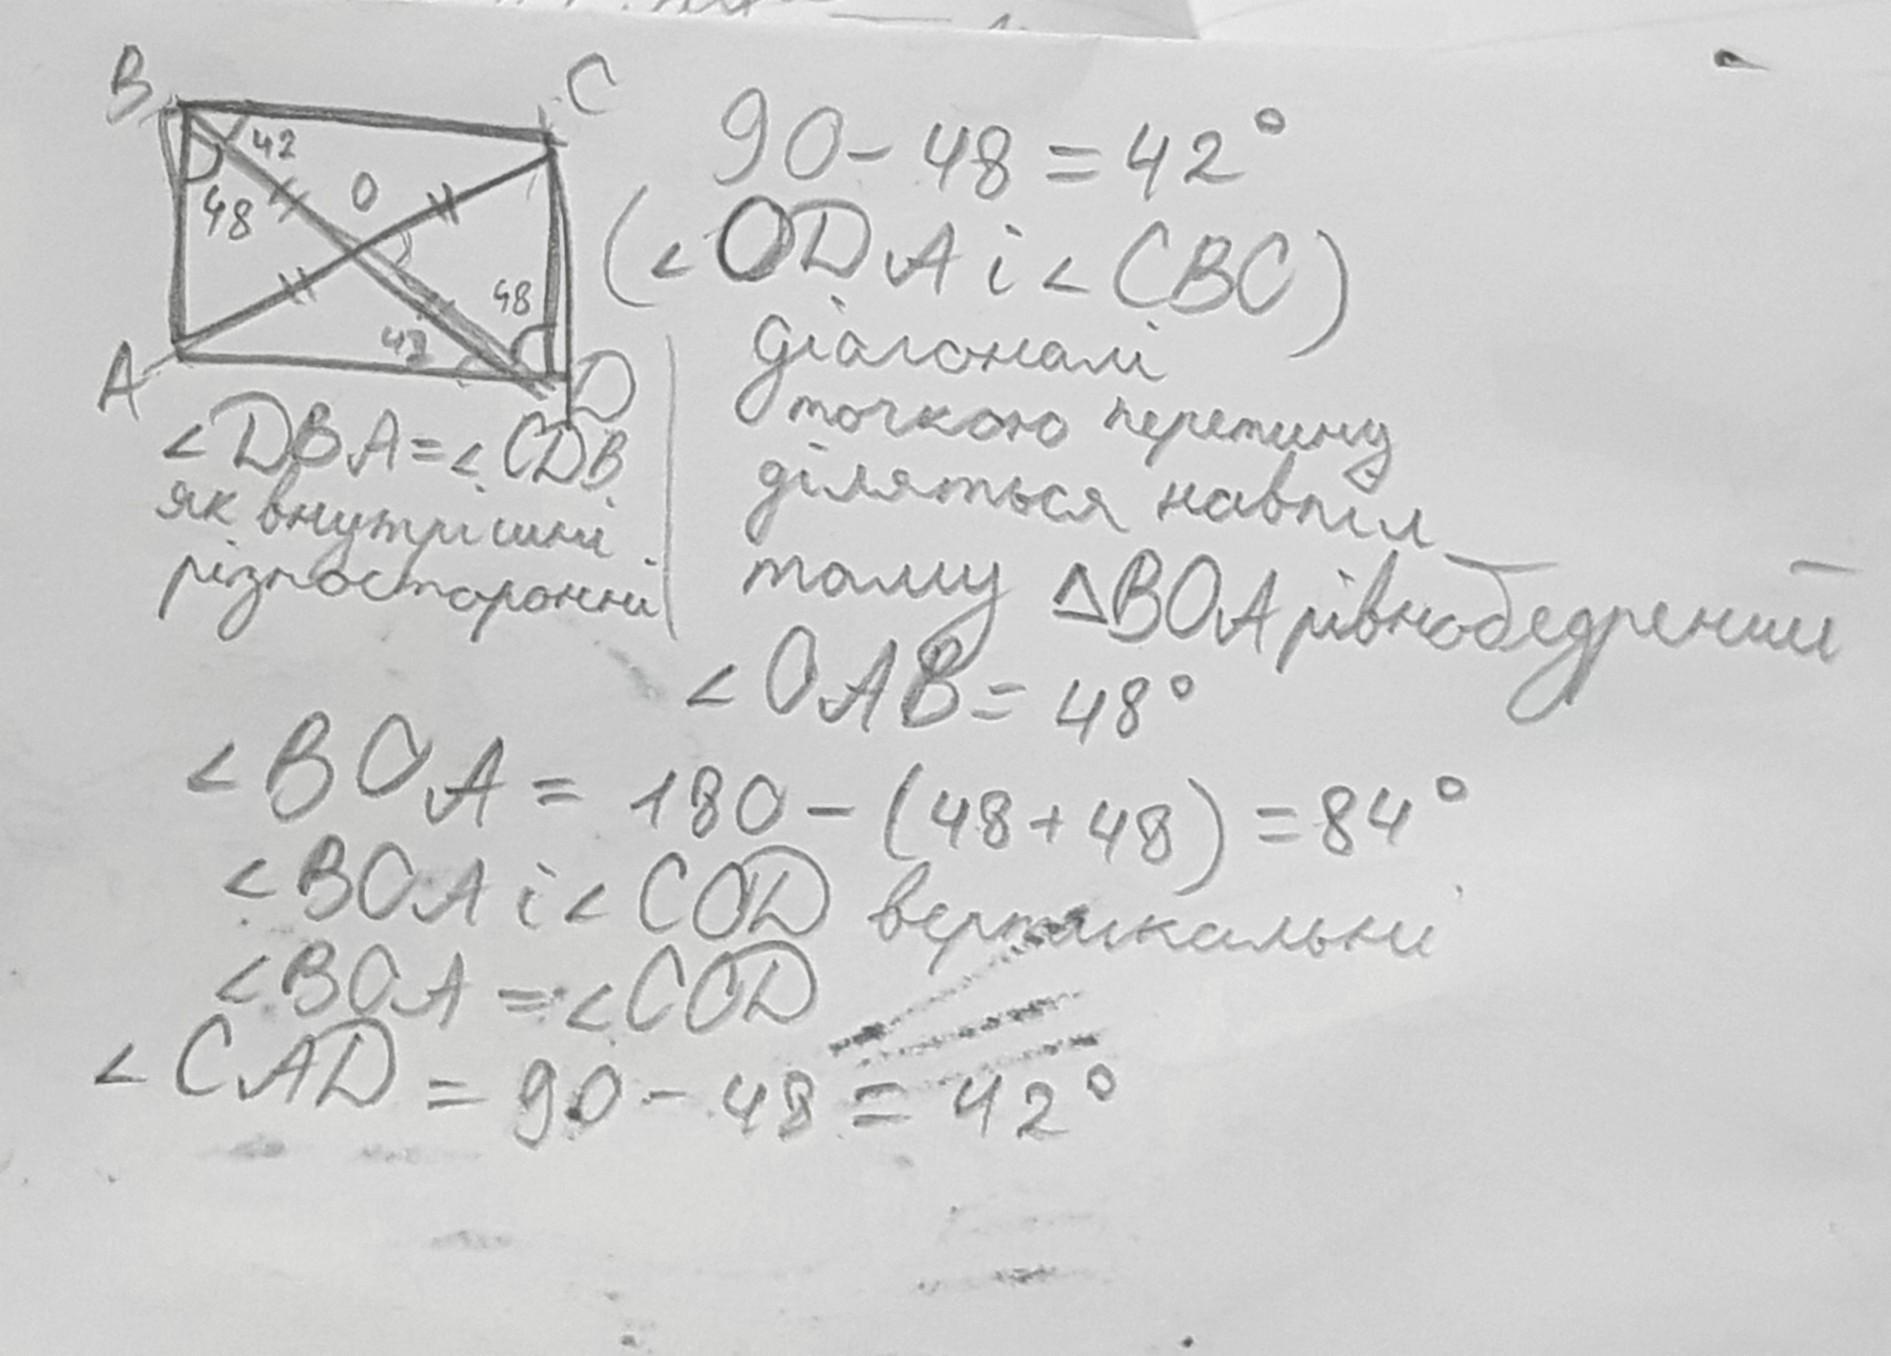 B
C
42
O
48
48
42
A
D
90 - 48 = 42°
(<ODA і <CBC)
<DBA = <CDB
як внутрішні
різносторонні
діагоналі
точкою перетину
діляться навпіл
тому △BOA рівнобедрений
<OAB = 48°
<BOA = 180 - (48 + 48) = 84°
<BOA і <COD вертикальні
<BOA = <COD
<CAD = 90 - 48 = 42°